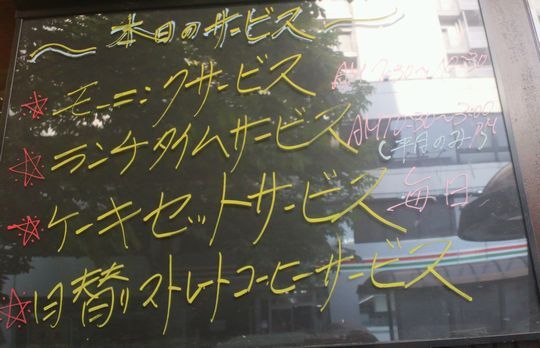 本日のサービス
☆モーニングサービス AM7:30～10:30
☆ランチタイムサービス AM10:30～3:00
(平日のみ)
☆ケーキセットサービス 毎日
☆日替りストレートコーヒーサービス